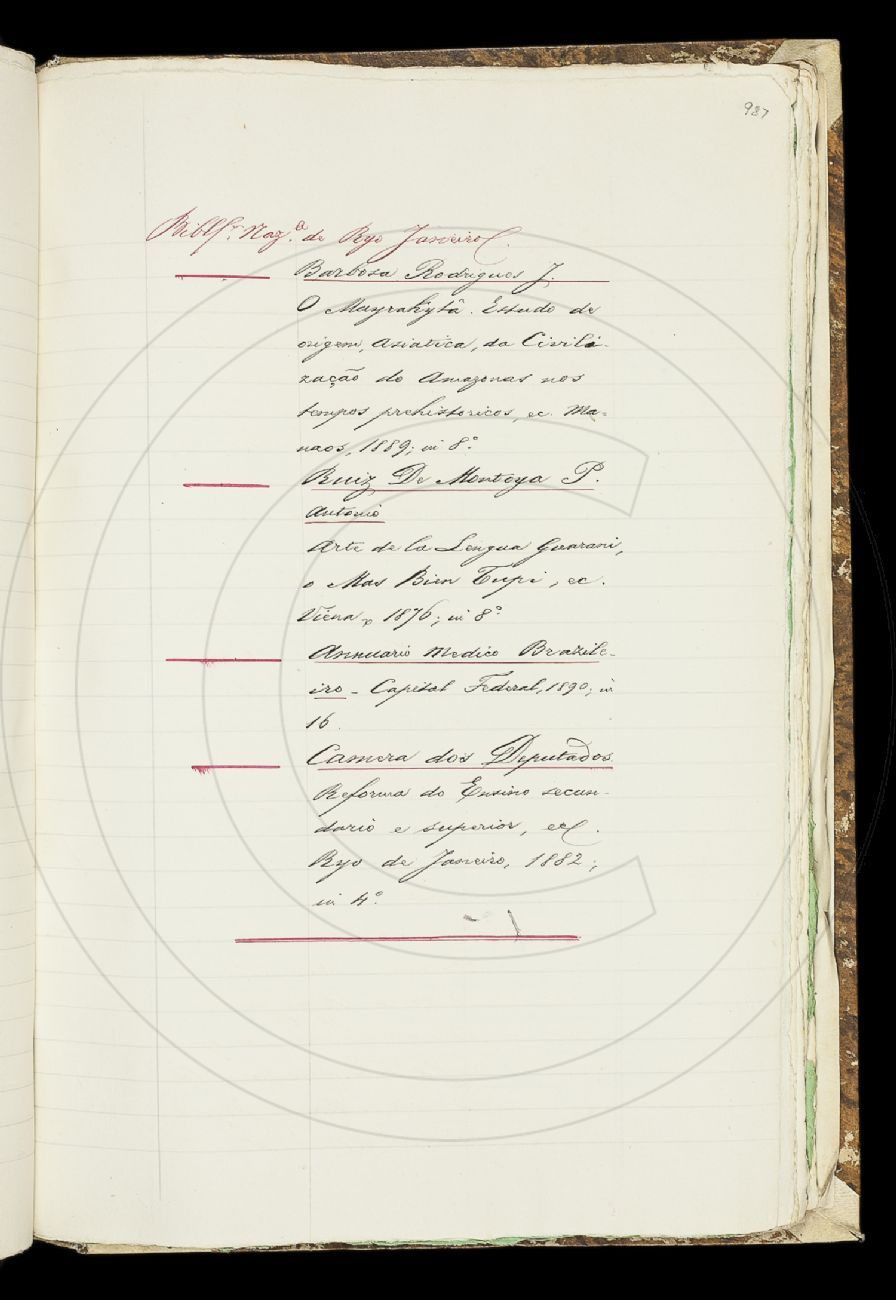 987
Bibl. Naz.a de Ryo Janeiro.
Barbosa Rodrigues J.
O Muyrakytã. Estudo de
origem, asiatica, da Civili-
zação do Amazonas nos
tempos prehistoricos, ec. Ma-
naos, 1889; in 8°.
Ruiz De Montoya P.
Antonio
Arte de la Lengua Guarani,
o Mas Bien Tupi, ec.
Viena, 1876; in 8°.
Annuario Medico Brazile-
iro - Capital Federal, 1890; in
16.
Camera dos Deputados.
Reforma do Ensino secun-
dario e superior, ecc.
Ryo de Janeiro, 1882;
in 4°.